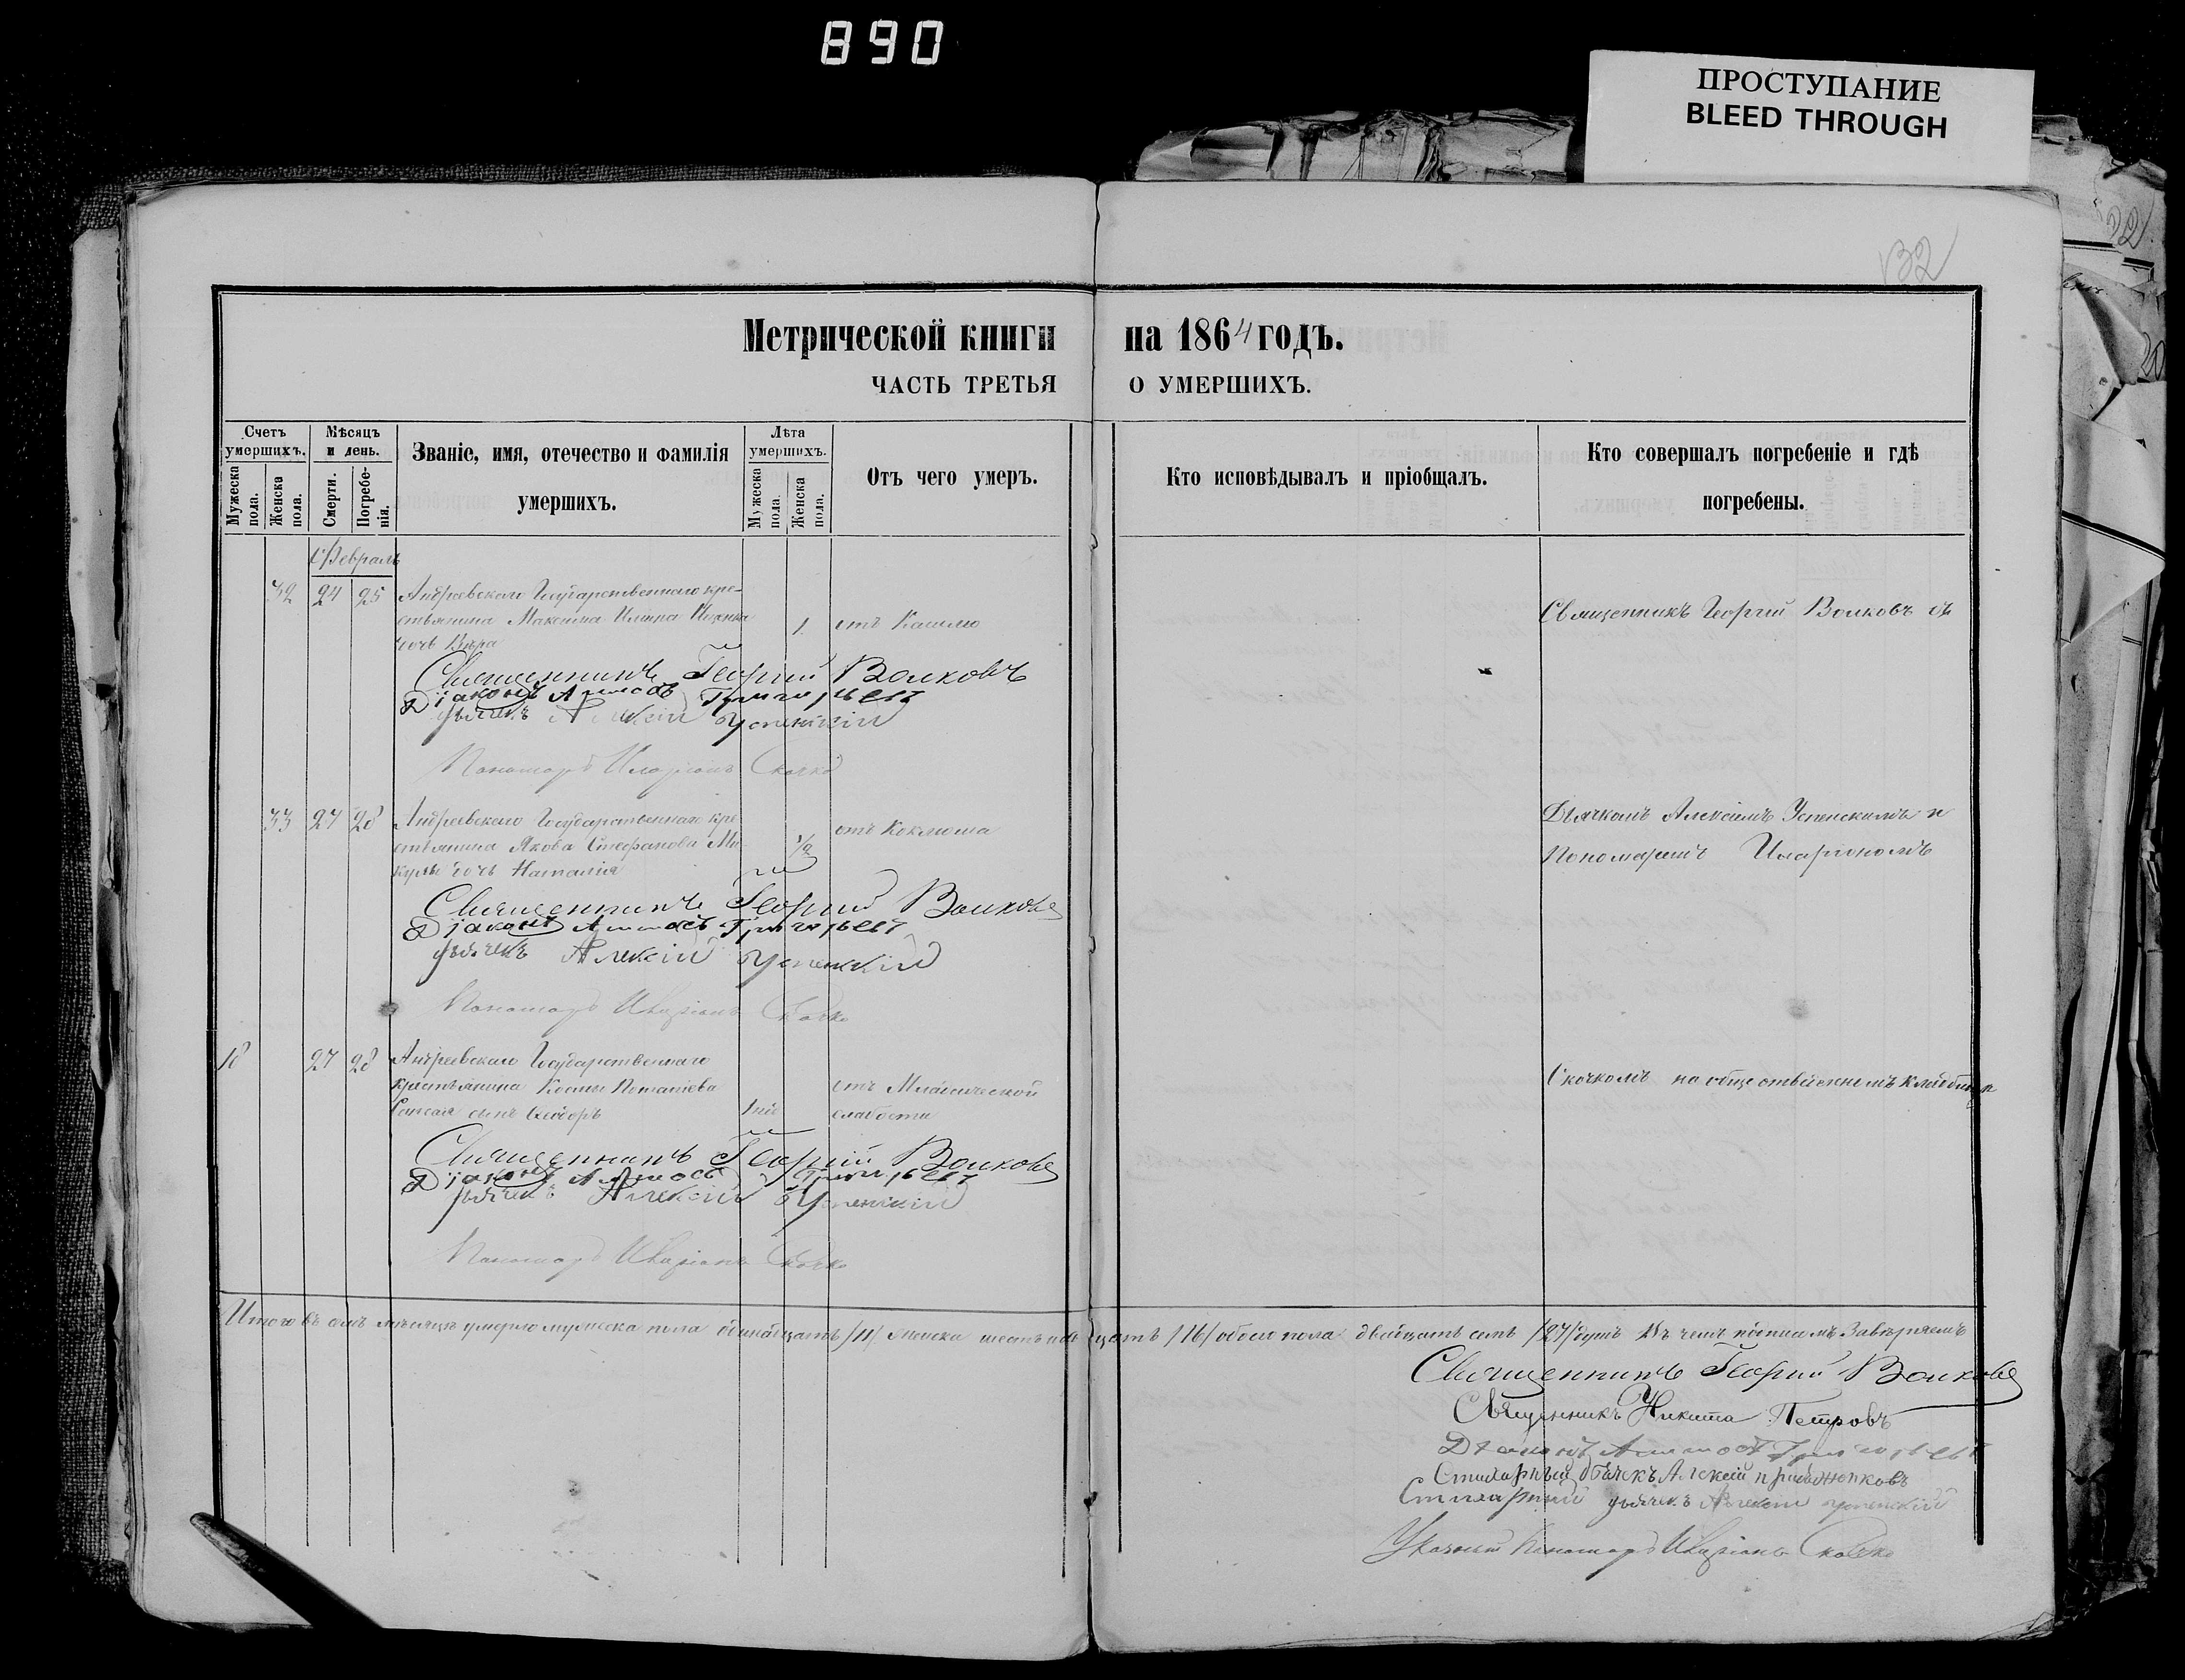 890
ПРОСТУПАНИЕ
BLEED THROUGH
132
Метрической книги на 1864 годъ.
ЧАСТЬ ТРЕТЬЯ О УМЕРШИХЪ.
Счетъ умершихъ.
Мужеска пола.
Женска пола.
Мѣсяцъ и день.
Смерти.
Погребенія.
Званіе, имя, отечество и фамилія умершихъ.
Лѣта умершихъ.
Мужеска пола.
Женска пола.
Отъ чего умеръ.
Кто исповѣдывалъ и пріобщалъ.
Кто совершалъ погребеніе и гдѣ погребены.
Февраль
32 24 25 Андреевскаго Государственнаго кре-
стьянина Максима Ильина
дочь Вѣра 1 отъ Кашлю
Священникъ Георгій Волковъ съ
Священникъ Георгій Волковъ
Діаконъ Григорьевъ
дьячекъ Алексій Успенскій
Пономарь Иларіонъ Скочко
33 27 28 Андреевскаго Государственнаго кре
стьянина Якова Стефанова Ми
кулы дочь Наталія 1/2 отъ Коклюша
Дьячкомъ Алексіемъ Успенскимъ и
Пономаремъ Иларіономъ
Священникъ Георгій Волковъ
Діаконъ Григорьевъ
дьячекъ Алексій Успенскій
Пономарь Иларіонъ Скочко
18 27 28 Андреевскаго Государственнаго
крестьянина Космы Потапіева
сынъ Ѳеодоръ отъ Младенческой
слабости
Скочкомъ на общественномъ кладбищѣ
Священникъ Георгій Волковъ
Діаконъ Григорьевъ
дьячекъ Алексій Успенскій
Пономарь Иларіонъ Скочко
Итого въ семъ мѣсяцѣ умерло мужеска пола одинадцать /11/ женска шестнадцать /16/ обоего пола двадцать семь /27/ душъ въ чемъ подписомъ Завѣряемъ
Священникъ Георгій Волковъ
Священникъ Никита Петровъ
Діаконъ Григорьевъ
Стихарный дьячекъ Алексій
Стихарный дьячекъ Алексій Успенскій
Указный Пономарь Иларіонъ Скочко